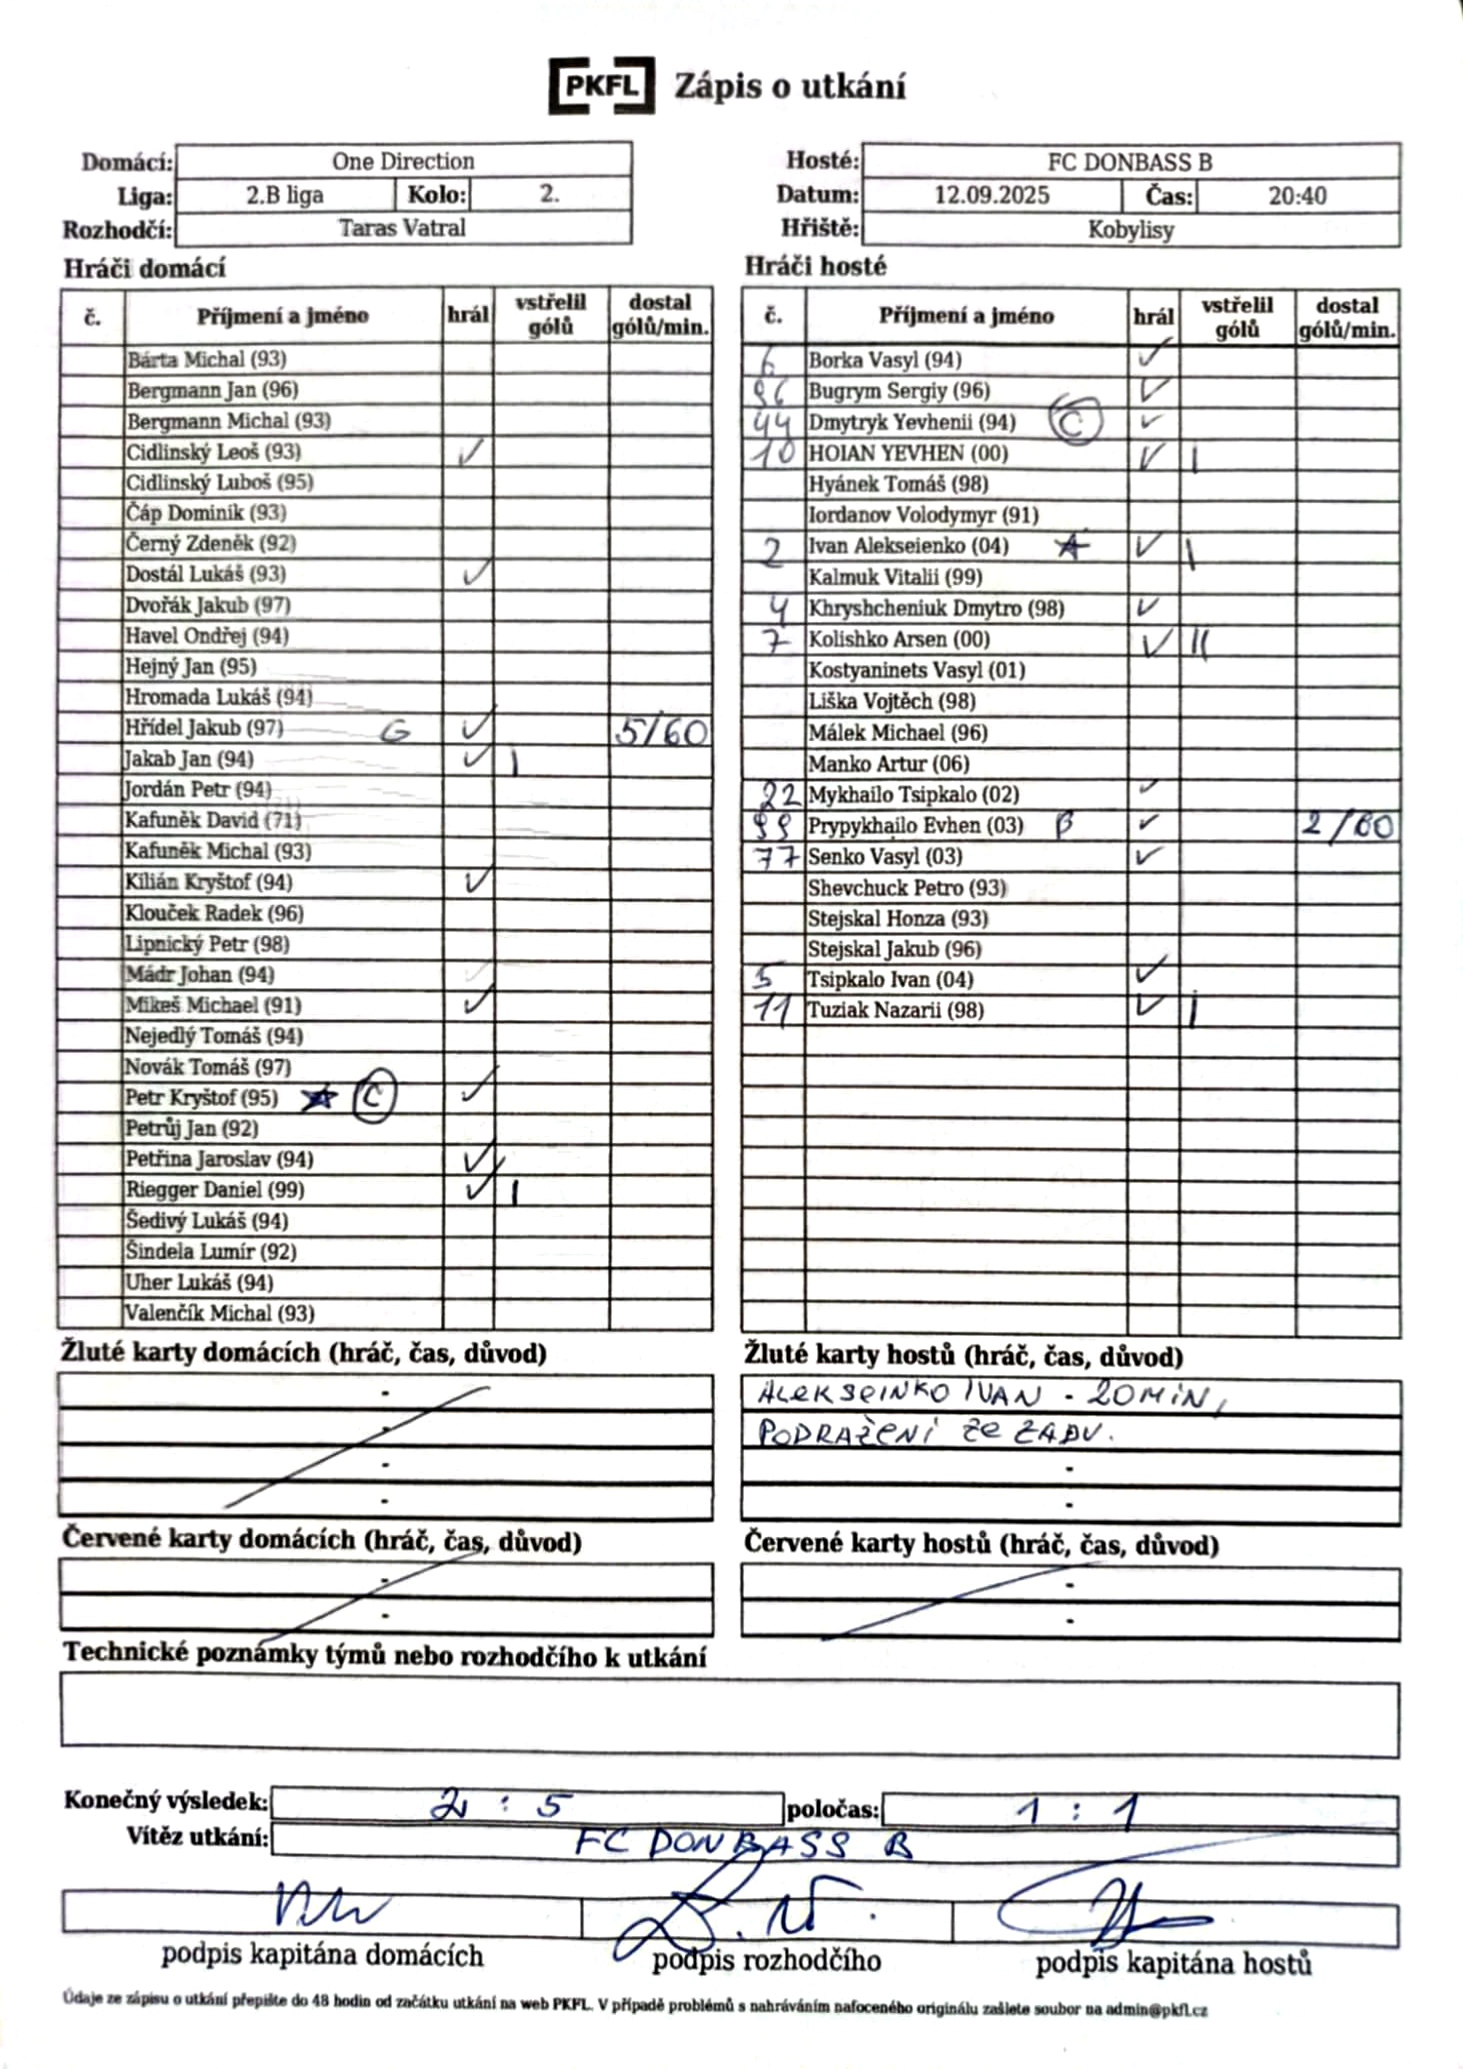 PKFL Zápis o utkání
Domácí: One Direction
Liga: 2.B liga Kolo: 2.
Rozhodčí: Taras Vatral
Hosté: FC DONBASS B
Datum: 12.09.2025 Čas: 20:40
Hřiště: Kobylisy
Hráči domácí
č. Příjmení a jméno hrál vstřelil gólů dostal gólů/min.
Bárta Michal (93)
Bergmann Jan (96)
Bergmann Michal (93)
Cidlinský Leoš (93) ✓
Cidlinský Luboš (95)
Čáp Dominik (93)
Černý Zdeněk (92)
Dostál Lukáš (93) ✓
Dvořák Jakub (97)
Havel Ondřej (94)
Hejný Jan (95)
Hromada Lukáš (94)
Hřídel Jakub (97) G ✓ 5/60
Jakab Jan (94) ✓ |
Jordán Petr (94)
Kafuněk David (71)
Kafuněk Michal (93)
Kilián Kryštof (94) ✓
Klouček Radek (96)
Lipnický Petr (98)
Mádr Johan (94)
Mikeš Michael (91) ✓
Nejedlý Tomáš (94)
Novák Tomáš (97)
Petr Kryštof (95) ★ C ✓
Petrůj Jan (92)
Petřina Jaroslav (94) ✓
Riegger Daniel (99) ✓ |
Šedivý Lukáš (94)
Šindela Lumír (92)
Uher Lukáš (94)
Valenčík Michal (93)
Hráči hosté
č. Příjmení a jméno hrál vstřelil gólů dostal gólů/min.
6 Borka Vasyl (94) ✓
96 Bugrym Sergiy (96) ✓
44 Dmytryk Yevhenii (94) C ✓
10 HOIAN YEVHEN (00) ✓ |
Hyánek Tomáš (98)
Iordanov Volodymyr (91)
2 Ivan Alekseienko (04) ★ ✓ |
Kalmuk Vitalii (99)
4 Khryshcheniuk Dmytro (98) ✓
7 Kolishko Arsen (00) ✓ ||
Kostyaninets Vasyl (01)
Liška Vojtěch (98)
Málek Michael (96)
Manko Artur (06)
22 Mykhailo Tsipkalo (02) ✓
99 Prypykhailo Evhen (03) ✓ 2/60
77 Senko Vasyl (03) ✓
Shevchuck Petro (93)
Stejskal Honza (93)
Stejskal Jakub (96)
5 Tsipkalo Ivan (04) ✓
11 Tuziak Nazarii (98) ✓ |
Žluté karty domácích (hráč, čas, důvod)
-
-
-
-
Žluté karty hostů (hráč, čas, důvod)
ALEKSEINKO IVAN - 20MIN,
PODRAŽENÍ ZE ZADU.
-
-
Červené karty domácích (hráč, čas, důvod)
-
-
Červené karty hostů (hráč, čas, důvod)
-
-
Technické poznámky týmů nebo rozhodčího k utkání
Konečný výsledek: 2 : 5 poločas: 1 : 1
Vítěz utkání: FC DONBASS B
podpis kapitána domácích podpis rozhodčího podpis kapitána hostů
Údaje ze zápisu o utkání přepište do 48 hodin od začátku utkání na web PKFL. V případě problémů s nahráváním nafoceného originálu zašlete soubor na admin@pkfl.cz